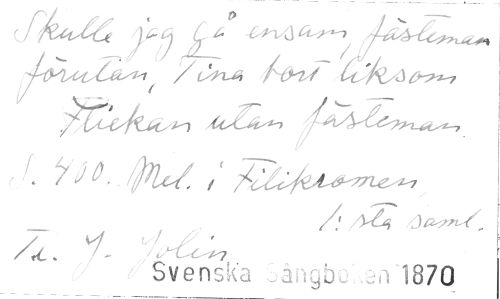 Skulle jag gå ensam, fästeman
förutan, Tina bort liksom
Flickan utan fästeman.
S. 400. Mel. i Filikromen,
1:sta saml.
Tr. J. Jolin
Svenska Sångboken 1870